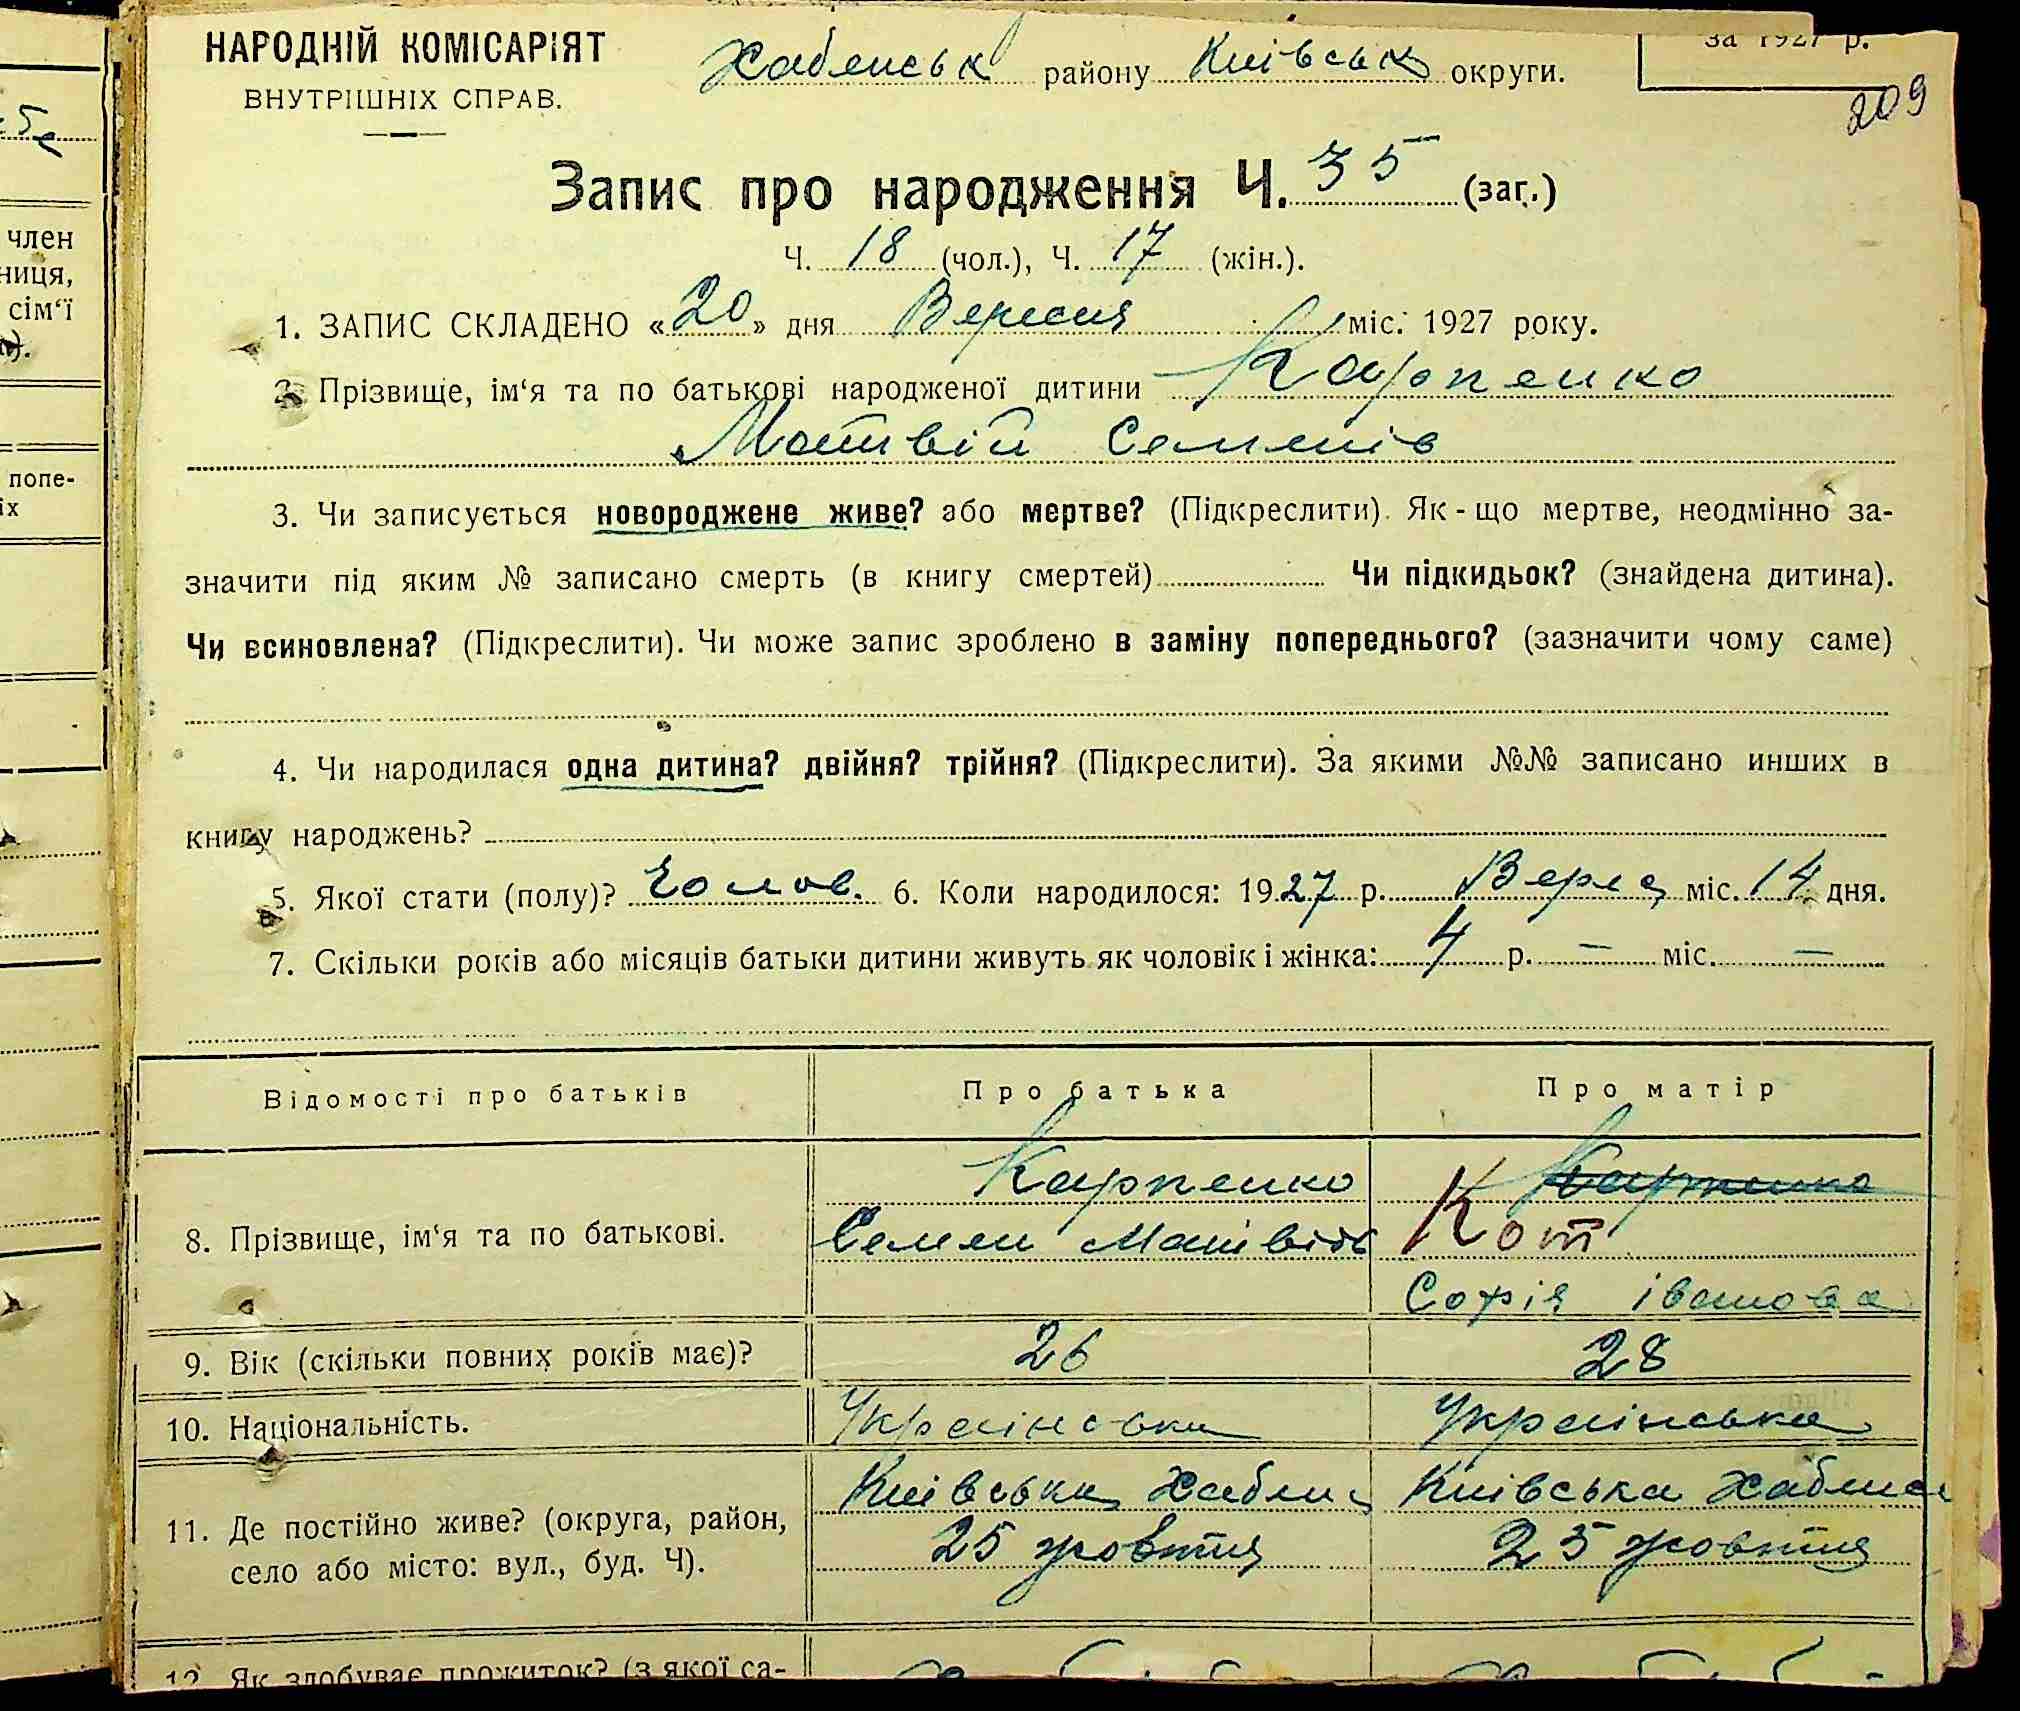 НАРОДНІЙ КОМІСАРІЯТ
ВНУТРІШНІХ СПРАВ.
Хабенськ району Київськ округи.
за 1927 р.
209
Запис про народження Ч. 35 (заг.)
Ч. 18 (чол.), Ч. 17 (жін.).
1. ЗАПИС СКЛАДЕНО «20» дня Вересня міс. 1927 року.
2. Прізвище, ім‘я та по батькові народженої дитини Карпенко
Матвій Семенів
3. Чи записується новороджене живе? або мертве? (Підкреслити). Як-що мертве, неодмінно за-
значити під яким № записано смерть (в книгу смертей) Чи підкидьок? (знайдена дитина).
Чи всиновлена? (Підкреслити). Чи може запис зроблено в заміну попереднього? (зазначити чому саме)
4. Чи народилася одна дитина? двійня? трійня? (Підкреслити). За якими №№ записано инших в
книгу народжень?
5. Якої стати (полу)? Чолов. 6. Коли народилося: 1927 р. Верес міс. 14 дня.
7. Скільки років або місяців батьки дитини живуть як чоловік і жінка: 4 р. — міс. —
Відомості про батьків Про батька Про матір
8. Прізвище, ім‘я та по батькові.
Карпенко
Семен Матвієв
Карпенко
Кот
Софія Іванова
9. Вік (скільки повних років має)? 26 28
10. Національність. Українська Українська
11. Де постійно живе? (округа, район,
село або місто: вул., буд. Ч).
Київська Хабенс
25 жовтня
Київська Хабенс
25 жовтня
12. Як здобуває прожиток? (з якої са-
член
ниця,
сім‘ї
попе-
іх